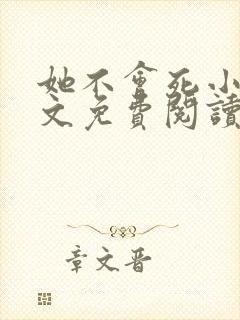 她不會死小
文免費閱讀
章文晋